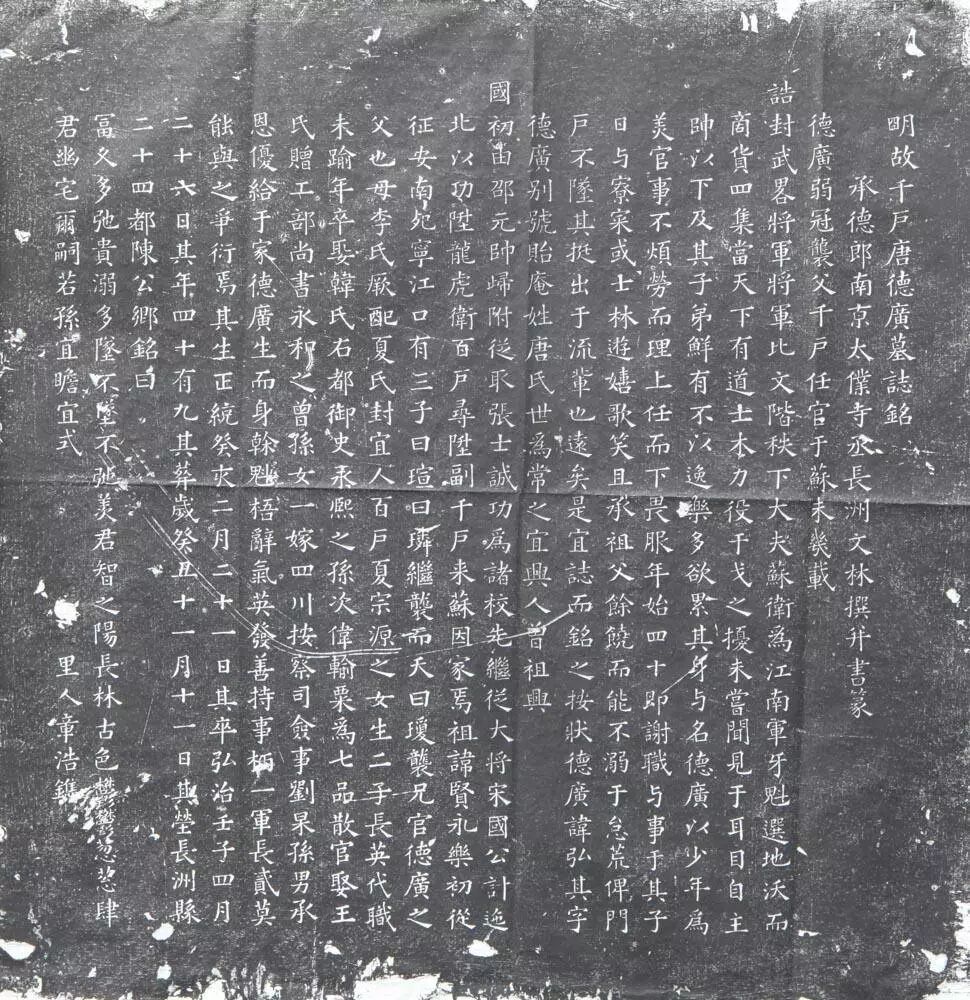 明故千戶唐德廣墓誌銘
承德郎南京太僕寺丞長洲文林撰并書篆
德廣弱冠襲父千戶任官于蘇未幾載
誥封武畧將軍將軍比文階秩下大夫蘇衛為江南軍牙魁選地沃而
商貨四集當天下有道士本力役干戈之擾未嘗聞見于耳目自主
帥以下及其子弟鮮有不以逸樂多欲累其身与名德廣以少年為
羙官事不煩勞而理上任而下畏服年始四十即謝職与事于其子
日与寮寀或士林遊嬉歌笑且承祖父餘饒而能不溺于怠荒俾門
戶不墜其挺出于流輩也遠矣是宜誌而銘之按狀德廣諱弘其字
德廣别號貽庵姓唐氏世為常之宜興人曾祖興
國初由邵元帥歸附從取張士誠功為諸校先繼從大將宋國公計迤
北以功陞龍虎衛百戶尋陞副千戶来蘇因家焉祖諱賢永樂初從
征安南死寧江口有三子曰瑄曰璘繼襲而夭曰瓊襲兄官德廣之
父也母李氏厥配夏氏封宜人百戶夏宗源之女生二子長英代職
未踰年卒娶韓氏右都御史永熙之孫次偉輸粟為七品散官娶王
氏贈工部尚書永和之曾孫女一嫁四川按察司僉事劉杲孫男承
恩優給于家德廣生而身榦魁梧辭氣英發善持事柄一軍長貳莫
能與之爭衍焉其生正統癸亥二月二十一日其卒弘治壬子四月
二十六日其年四十有九其葬歲癸丑十一月十一日其塋長洲縣
二十四都陳公鄉銘曰
冨久多弛貴溺多墜不墜不弛羙君智之陽長林古色鬱鬱葱葱肆
君幽宅爾嗣若孫宜瞻宜式
里人章浩鐫